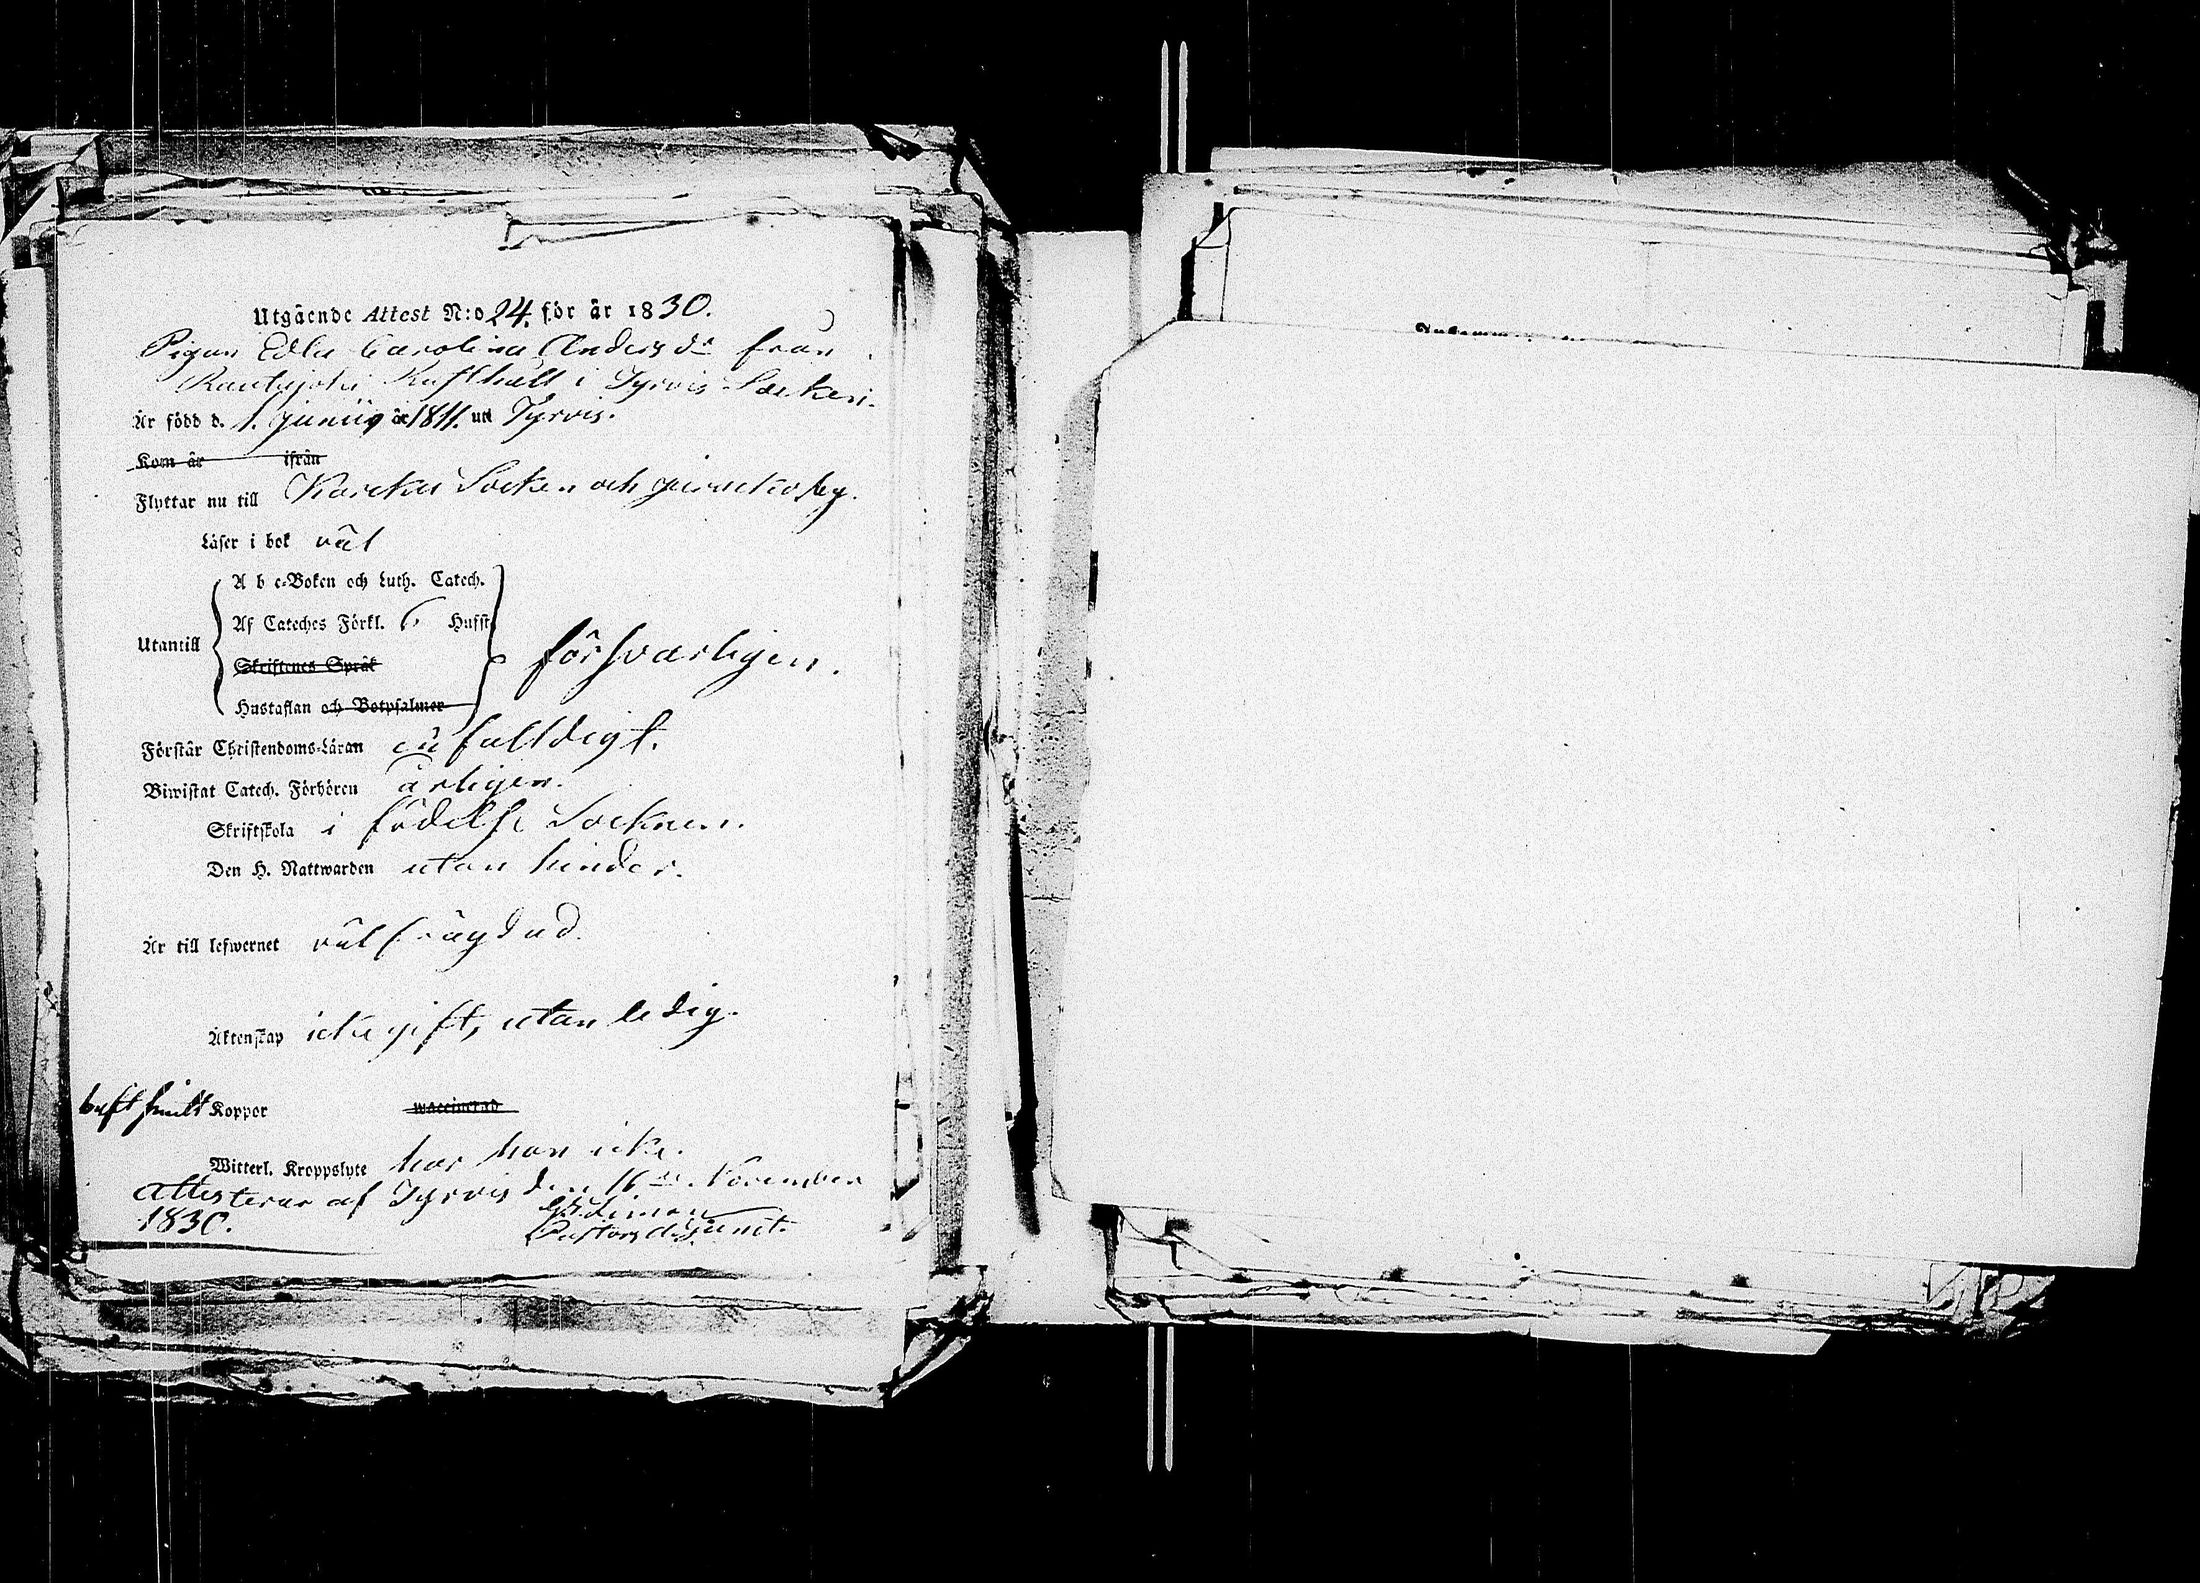 Utgående Attest N:o 24. för år 1830.
Pigan Edla Carolina Andersdr från
Rautajoki Rusthåll i Tyrvis Socken.
Är född d. 1. Junii år 1811. uti Tyrvis.
Kom år ifrån
Flyttar nu till Karcku Socken och by.
Läser i bok väl
A b c-Boken och Luth. Catech.
Af Cateches Förkl. 6 Hufst.
Utantill
försvarligen.
Skriftenes Språk
Hustaflan och Botpsalmer
Förstår Christendoms-Läran enfaldigt.
Biwistat Catech. Förhören årligen.
Skriftskola i födelse Socknen.
Den H. Nattwarden utan hinder.
Är till lefwernet välfrägdad.
Äktenskap icke gift, utan ledig.
haft Koppor waccinerad
Witterl. Kroppslyte har hon icke.
Attesterar af Tyrvis den 16de November
1830. Liman
Pastors adjunct.